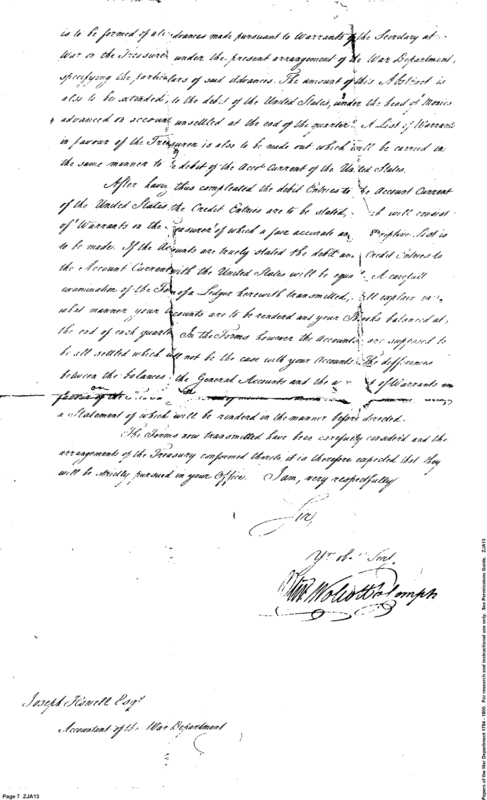 is to be formed of all advances made pursuant to Warrants of the Secretary at
War on the Treasurer under the present arrangement of the War Department,
specifying the particulars of said advances. The amount of this Abstract is
also to be extended, to the debit of the United States, under the head of Monies
advanced on account unsettled at the end of the quarter. A List of Warrants
in favour of the Treasurer is also to be made out which will be carried in
the same manner to debit of the Accot Current of the United States.
After having thus compleated the debit Entries to the Account Current
of the United States the Credit Entries are to be stated, will consist
of Warrants on the Treasurer of which a fair accurate an descriptive List is
to be made. If the Accounts are truely stated the debit and Credit Entries to
the Account Current with the United States will be equal A carefull
examination of the Form of a Ledger herewith transmitted, will explain in
what manner your Accounts are to be rendered and your Books balanced at,
the end of each quarter In the Forms however the Accounts are supposed to
be all settled which will not be the case with your Accounts The difference
between the balances the General Accounts and the of Warrants on
a Statement of which will be rendered in the manner before directed.
The Forms now transmitted have been carefully considered and the
arrangements of the Treasury conformed thereto, it is therefore expected that they
will be strictly pursued in your Office. I am, very respectfully
Sir,
Yr ob. Servt.
Olivr Wolcott Jr Compt
Joseph Howell Esqr
Accountant of the War Department
Page 7 ZJA13
Papers of the War Department 1784 - 1800. For research and instructional use only. See Permissions Guide. ZJA13